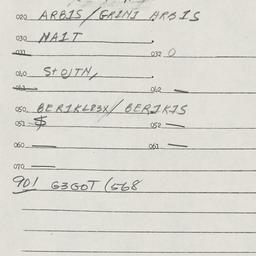 020 ARBIS/GRINI ARBIS
030 NAIT.
031 032 0
040 StOJTN,
041 042 —
050 BERIKL83X/BERIKIS
051 $ 052 —
060 — 061 —
070 —
901 G3GOT (568